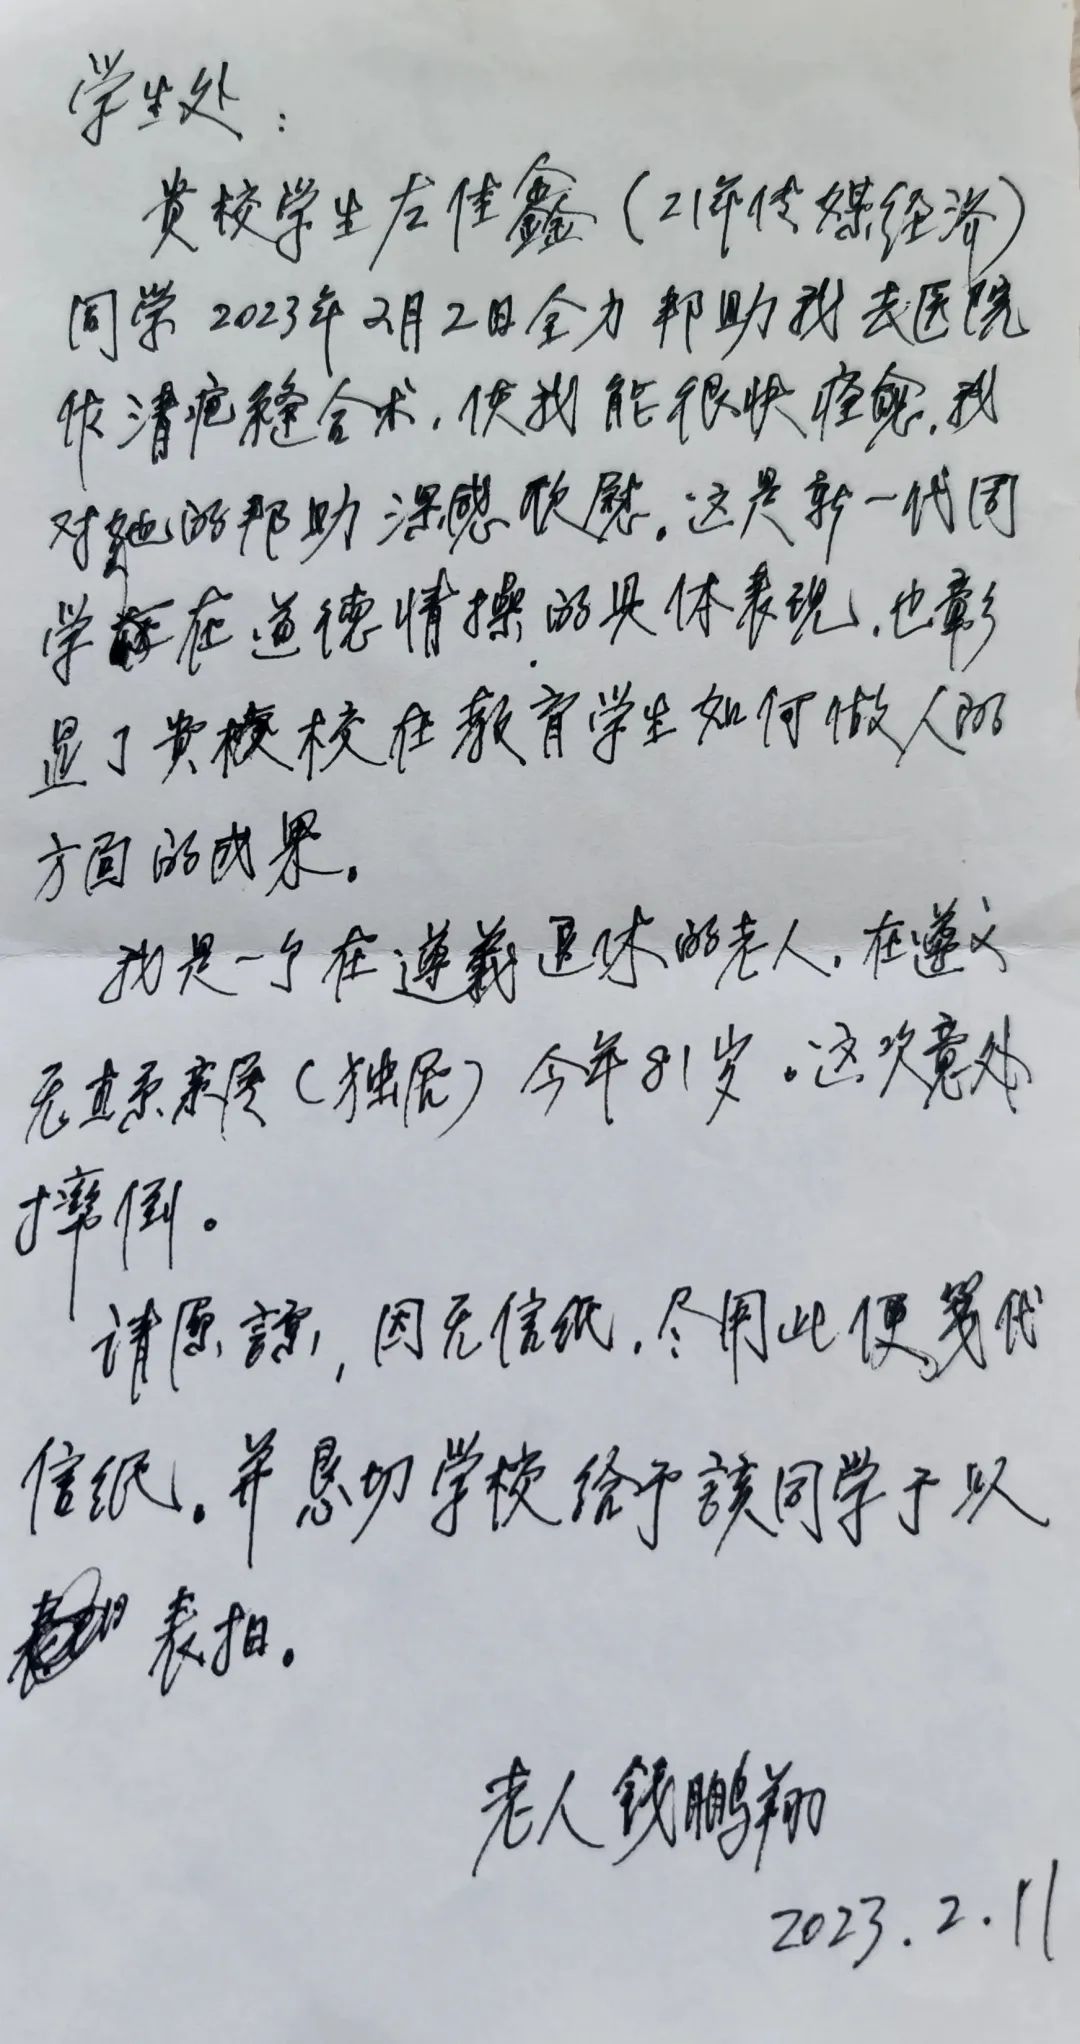 学生处：
贵校学生左佳鑫（21年传媒经济）
同学2023年2月2日全力帮助我去医院
作清疮缝合术，使我能很快痊愈，我
对她的帮助深感欣慰。这是新一代同
学在道德情操的具体表现，也彰
显了贵校在教育学生如何做人的
方面的成果。
我是一个在遵義退休的老人，在遵义
无直系亲属（独居）今年81岁。这次意外
摔倒。
请原諒，因无信纸，尽用此便笺代
信纸。并恳切学校给予該同学于以
表扬。
老人钱鹏翔
2023.2.11